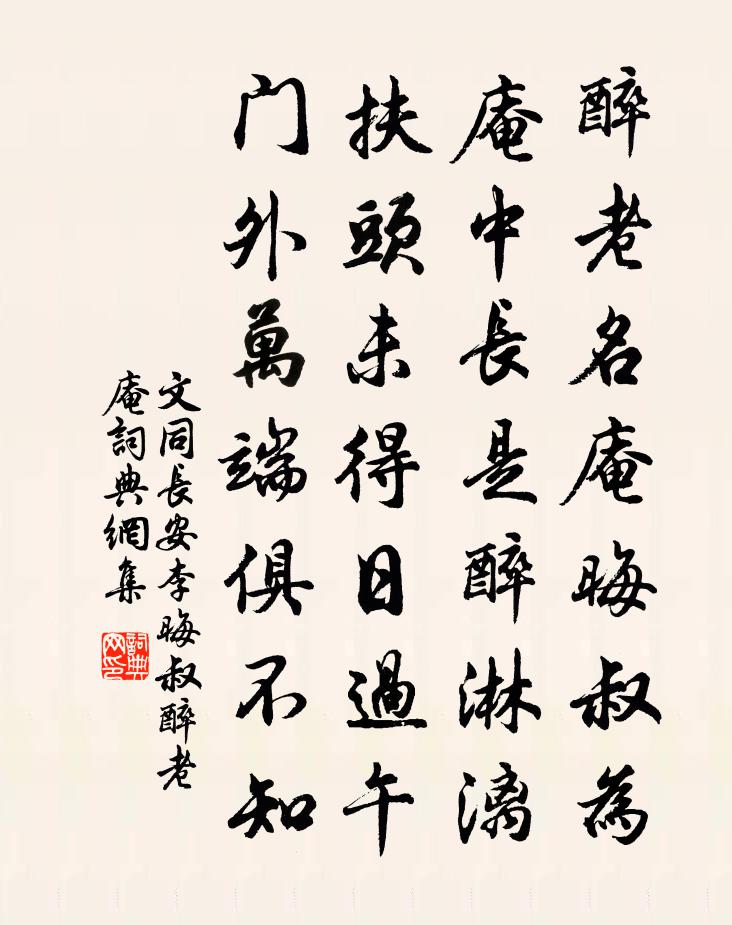 醉老名庵晦叔為
庵中長是醉淋漓
扶頭未得日過午
门外萬端俱不知
文同長安李晦叔醉老
庵詞典網集
詞典
网印